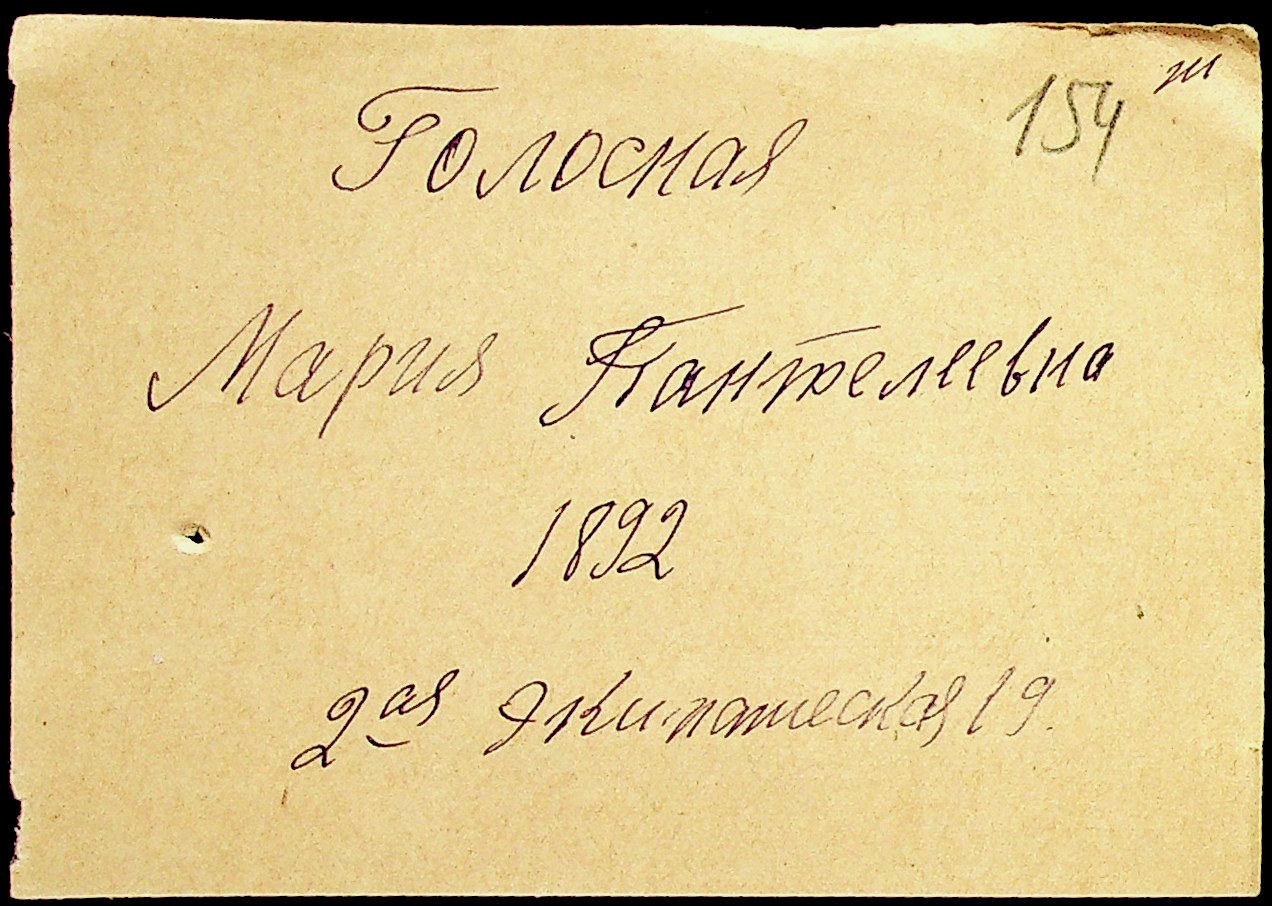 154
Голосная
Мария Пантелеевна
1892
2ая Экипашеская 19.